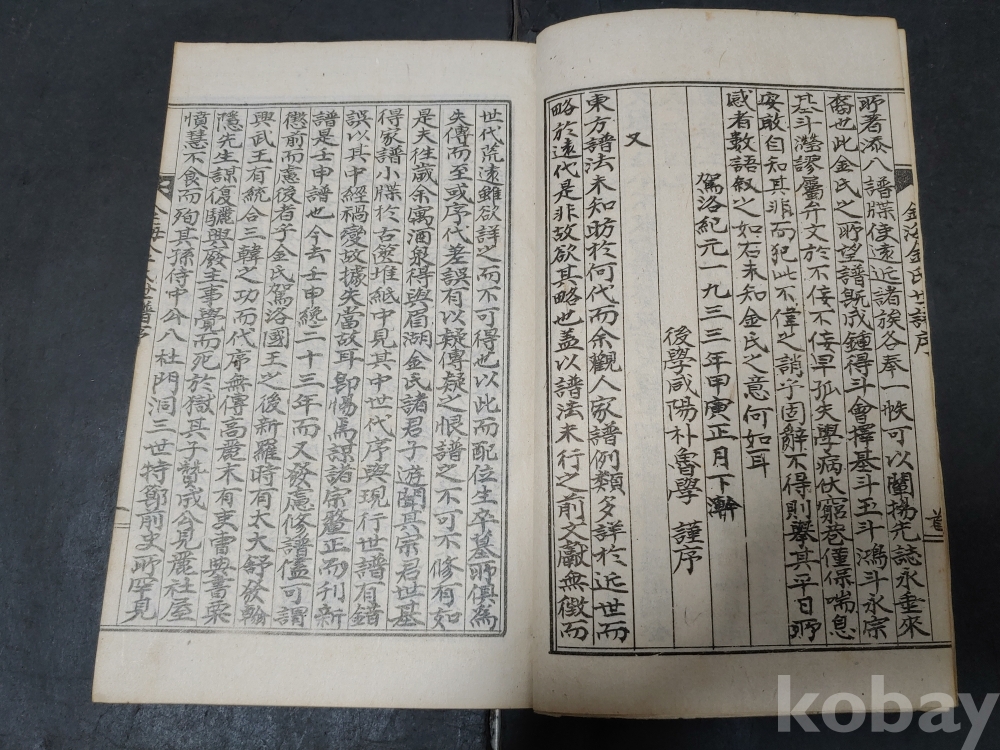 所著添入譜牒使遠近諸族各奉一帙可以闡揚先誌永垂來
裔也此金氏之所望譜旣成鍾得斗會擇基斗玉斗鴻斗永宗
基斗瀅謬屬弁文於不佞不佞早孤失學病伏窮巷僅保喘息
安敢自知其非而犯此不僅之誚乎固辭不得則擧其平日所
感者數語叙之如右未知金氏之意何如耳
駕洛紀元一九三三年甲寅正月下澣
後學咸陽朴魯學 謹序
又
東方譜法未知昉於何代而余觀人家譜例類多詳於近世而
略於遠代是非故欲其略也盖以譜法未行之前文獻無徵而
世代荒遠雖欲詳之而不可得也以此而配位生卒墓所俱爲
失傳而至或序代差誤有以疑傳疑之恨譜之不可不修有如
是夫往歲余寓酒泉得與眉湖金氏諸君子遊聞其宗君世基
得家譜小牒於古篋堆紙中見其中世代序與現行世譜有錯
誤以其中經禍變故據失當故耳卽惕焉謀諸宗釐正而刊新
譜是壬申譜也今去壬申纔二十三年而又發應修譜儘可謂
懲前而慮後者乎金氏駕洛國王之後新羅時有太大舒發翰
興武王有統合三韓之功而代序無傳高麗末有吏曹典書粟
隱先生謀復驪興廢主事覺而死於獄其子贊成公見麗社屋
憤恚不食而殉其孫侍中公入杜門洞三世特節前史所罕見
金海金氏世譜序